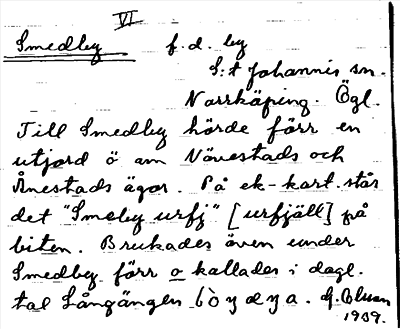 VI
Smedby f. d. by
S:t Johannis sn.
Norrköping. Ögl.
Till Smedby hörde förr en
utjord ö om Növestads och
Ånestads ägor. På ek-kart. står
det "Smeby urfj" [urfjäll] på
biten. Brukades även under
Smedby förr o kallades i dagl.
tal Långängen
1909.